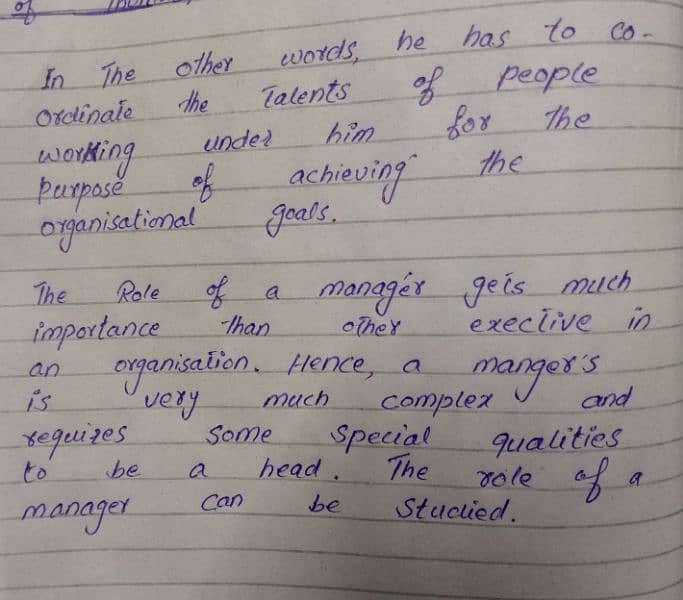 of
In The other words, he has to co-
ordinate the Talents of people
working under him for the
purpose of achieving the
organisational goals.
The Role of a manager gets much
importance than other exective in
an organisation. Hence, a manger's
is very much complex and
requires some special qualities
to be a head. The role of a
manager can be studied.